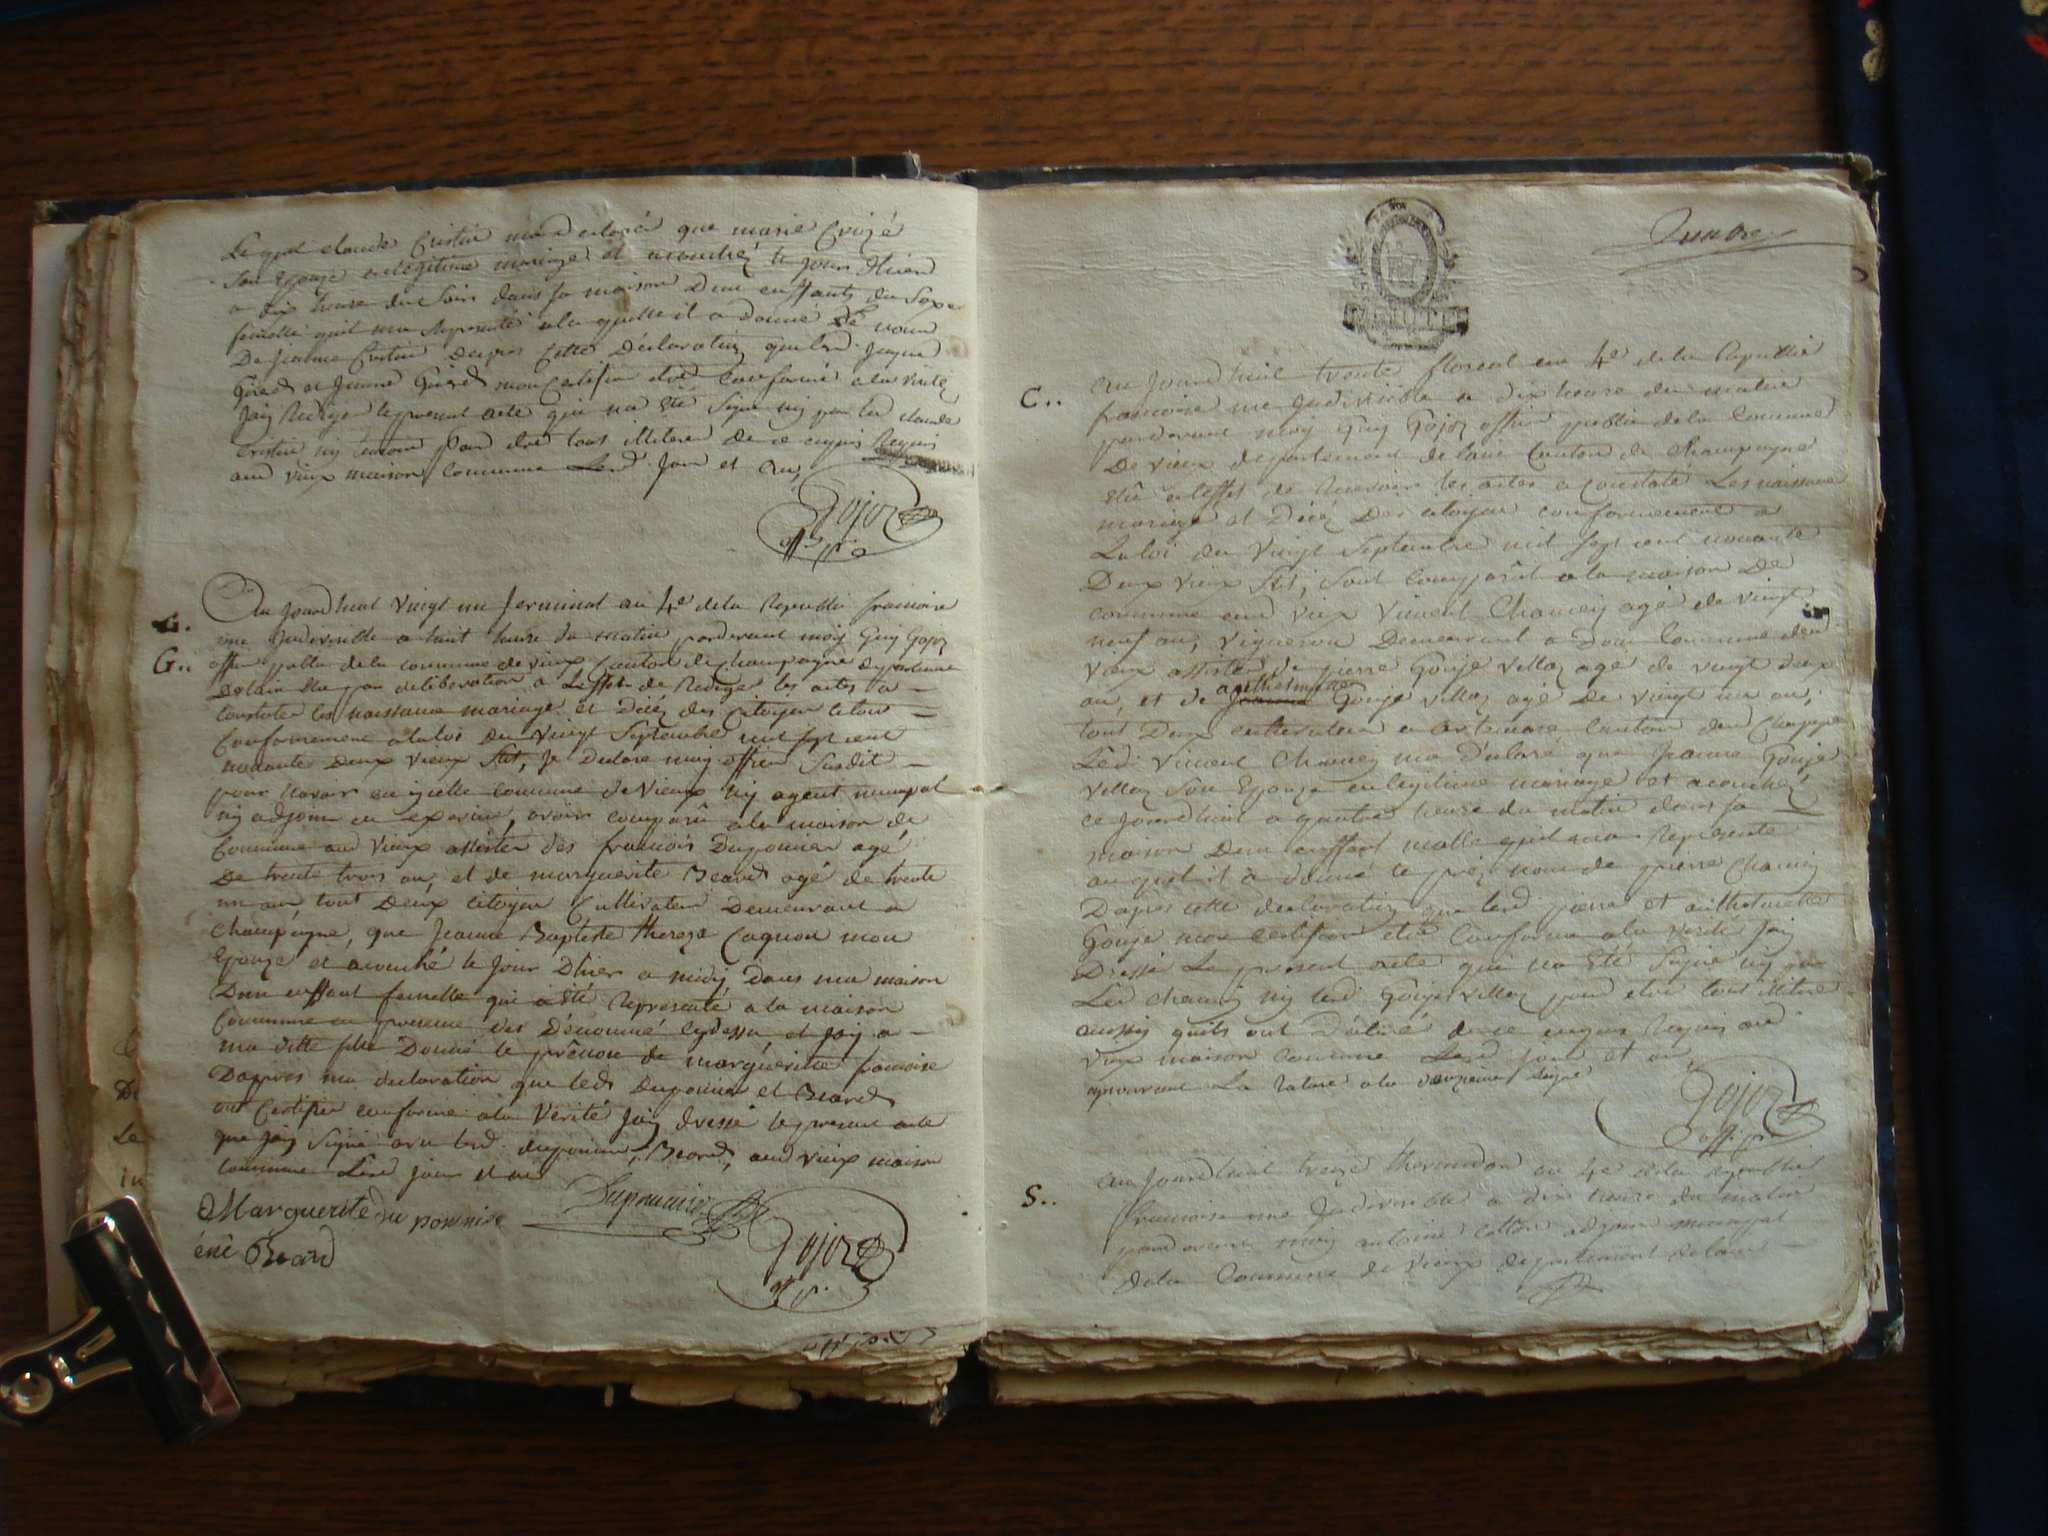 Lequel claude Cristin ma declaré que marie Croizé
Son Epouze en légitime mariage et acouchéz le jour d'hier
a dix heure du Soir dans sa maison D'un enffants du Sexe
femelle quil ma Representé a la quelle il a donné le nom
De jeanne Cristin dapres Cette Déclaration que les
et jeanne mon Certifier etre conforme a la verité
Jaÿ Redigé le present acte qui na été Signe nÿ par led claude
Cristin nÿ pour etre tous illiteré de ce enquis Requis
aud vieux maison Commune Lesd. Jour et an,
Gojoz
off. p.
G.
G..
Au Jourdhuit vingt un Jerminal an 4e de la Republi francoise
une Indivisible a huit heure du matin pardevant moÿ Guÿ Gojoz
offier public de la commune de vieux Canton de champagne departement
De lain Elu par deliberation a Leffet de Rediger les actes a
Constater les naissance mariage et Décéz des Citoyen le tout
Conformement a la loi du Vingt Septembre mil sept cent
nonante Deux vieux Stil, Je Declare moÿ offier Susdit
pour navoir en icelle Commune de Vieux nÿ agent municipal
nÿ adjoint en exercice, avoir comparu a la maison de
Commune aud Vieux assister des francois Duponnier agé
De trente trois an, et de marguerite Beard agé de trente
un an tout Deux Citoyen Cultivateur Demeurant a
Champagne, que Jeanne Baptiste thereze Cagnon mon
Epouze et acouché le Jour D'hier a midÿ dans ma maison
D'un enffant femelle qui a été Representé a la maison
Commune en presence des Dénommé cÿdessu, et Jaÿ a
ma ditte fille Donné le prénom de marguéritte francoise
Dappres ma declaration que lesd. Duponnier et Beard
ont Certifier conforme a la Vérité Jaÿ dressé le present acte
que Jaÿ Signé avec lesd. duponnier, Beard, aud vieux maison
Commune Lesd jour et an
Marguerite du ponnié
éné Beard
Duponnier
Gojoz
off. p.
C..
Au Jourdhuit trente floreal an 4e de la Republi
francoise une Indivisible a dix heure du matin
pardevant moÿ Guÿ Gojoz offier public de la Commune
De vieux departement de lain Canton de Champagne
Elu a leffet de Recevoir les actes a Constaté Les naissance
mariage et Décéz Des citoyen conformement a
La loi du Vingt Septembre mil sept cent nonante
Deux vieux Stil, Sont Comparût a la maison De
commune aud vieux Vincent Chamein agé de vingt
neuf an, Vigneron Demeurant a Don Commune dud
Vieux assister de pierre Gouje villaz age de vingt deux
an, et de anthelmette Gouje villaz agé De vingt un an,
tout Deux cultivateur a artemare Canton dud Champagne
Lêd. Vincent Chamein ma Déclaré que Jeanne Gouje
Villaz Son Epouze en legitime mariage et acouchéz
ce Jourdhuit a quatre heure du matin dans sa
maison D'un enffant malle quil ma Représenté
au quel il a donné le prénom de pierre Chamein
D'apres cette declaration que lesd pierre et anthelmette
Gouje mon Certifier etre Conforme a la verité Jaÿ
Dressé Le present acte qui na été Signe nÿ par
Led Chamein nÿ lesd. Gouje villaz pour etre tous illiteré
aussÿ quils ont Déclaré de ce enquis Requis aud.
Vieux maison Commune Lesd jour et an
approuvant La rature a la douzieme Ligne
Gojoz
off. p.
S..
Au Jourdhuit treize thermidor an 4e de la Republi
francoise une Indivisible a dix heure du matin
pardevant moÿ antoine adjoint municipal
de la Commune de Vieux departement de lain